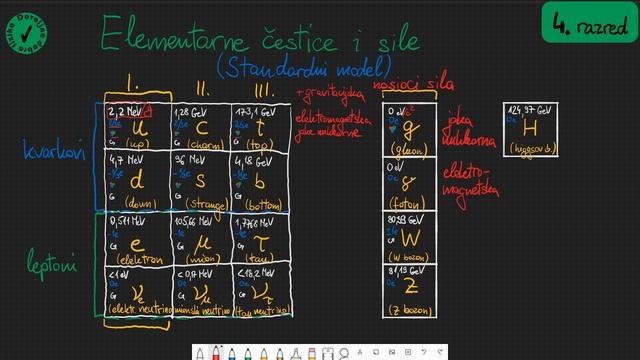 Dovoljno Dobra Fizika
4. razred
Elementarne čestice i sile
(Standardni model)
I. II. III.
+gravitacijska
elektromagnetska
jake nuklearne
nosioci sila
kvarkovi
2,2 MeV/c² 1,28 GeV 173,1 GeV 0 eV/c² 124,97 GeV
2/3e 2/3e 2/3e 0e 0e
u c t g H
(up) (charm) (top) (gluon) (higgsov b.)
jaka
nuklearna
4,7 MeV 96 MeV 4,18 GeV 0 eV
-1/3e -1/3e -1/3e 0e
d s b γ
(down) (strange) (bottom) (foton)
elektro-
magnetska
leptoni
0,511 MeV 105,66 MeV 1,7768 MeV 80,39 GeV
-1e -1e -1e
e μ τ W
(elektron (mion) (tau) (W bozon)
<1 eV <0,17 MeV <18,2 MeV 91,19 GeV
0e 0e 0e 0e
νe νμ ντ Z
(elektr. neutrino) mionski neutrino) (tau neutrino) (Z bozon)